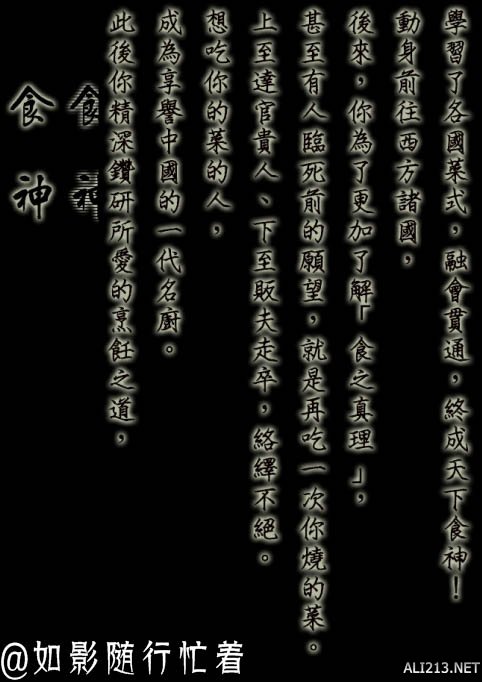 食神
食神
此後你精深鑽研所愛的烹飪之道，
成為享譽中國的一代名廚。
想吃你的菜的人，
上至達官貴人、下至販夫走卒，絡繹不絕。
甚至有人臨死前的願望，就是再吃一次你燒的菜。
後來，你為了更加了解「食之真理」，
動身前往西方諸國，
學習了各國菜式，融會貫通，終成天下食神！
@如影随行忙着
ALI213.NET